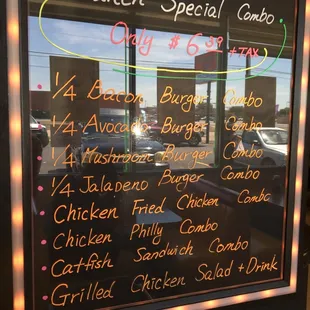 Lunch Special Combo
Only $6.59 +TAX
1/4 Bacon Burger Combo
1/4 Avocado Burger Combo
1/4 Mushroom Burger Combo
1/4 Jalapeno Burger Combo
Chicken Fried Chicken Combo
Chicken Philly Combo
Catfish Sandwich Combo
Grilled Chicken Salad + Drink